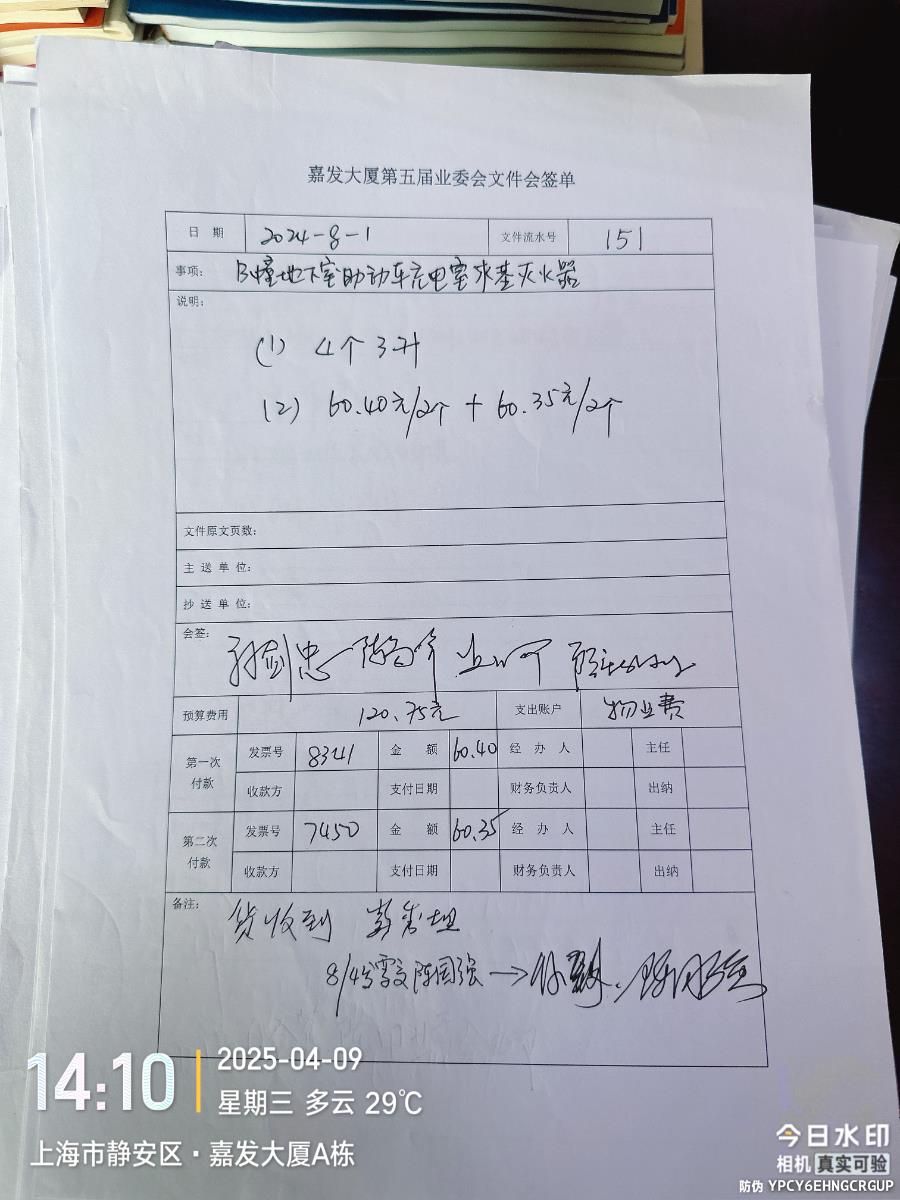 嘉发大厦第五届业委会文件会签单
日 期 2024-8-1 文件流水号 151
事项: B幢地下室助动车充电室水基灭火器
说明:
(1) 4个 3升
(2) 60.40元/2个 + 60.35元/2个
文件原文页数:
主 送 单 位:
抄 送 单 位:
会签:
预算费用 120.75元 支出账户 物业费
第一次付款 发票号 8341 金 额 60.40 经 办 人 主任
收款方 支付日期 财务负责人 出纳
第二次付款 发票号 7450 金 额 60.35 经 办 人 主任
收款方 支付日期 财务负责人 出纳
备注:
货收到
8/4 陈国强 →
14:10
2025-04-09
星期三 多云 29℃
上海市静安区·嘉发大厦A栋
今日水印
相机 真实可验
防伪 YPCY6EHNGCRGUP